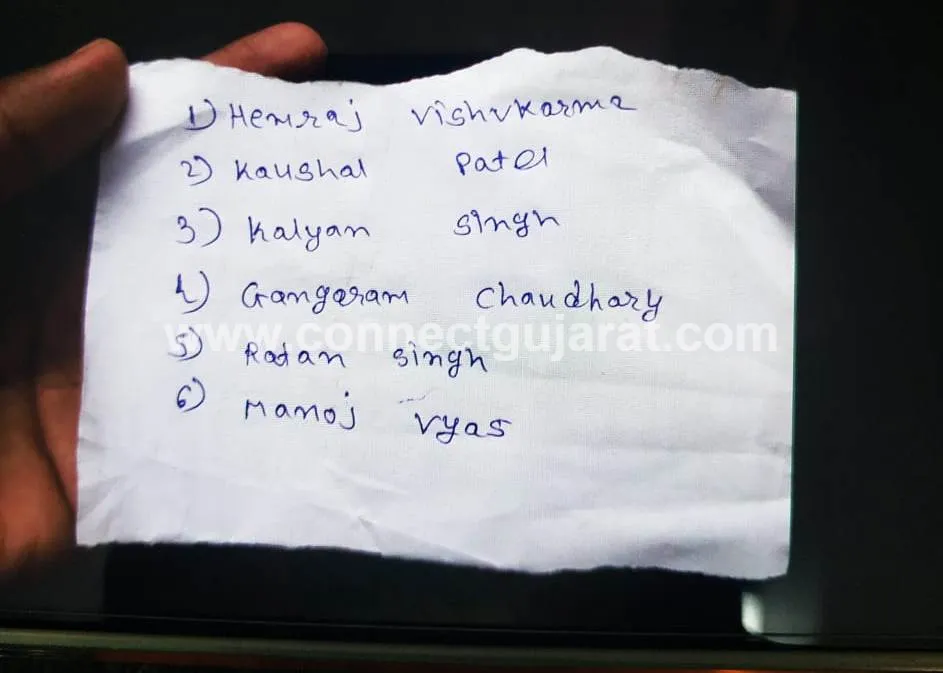 1) Hemraj Vishvkarma
2) Kaushal Patel
3) Kalyan Singh
4) Gangaram Chaudhary
www.connectgujarat.com
5) Ratan Singh
6) Manoj Vyas